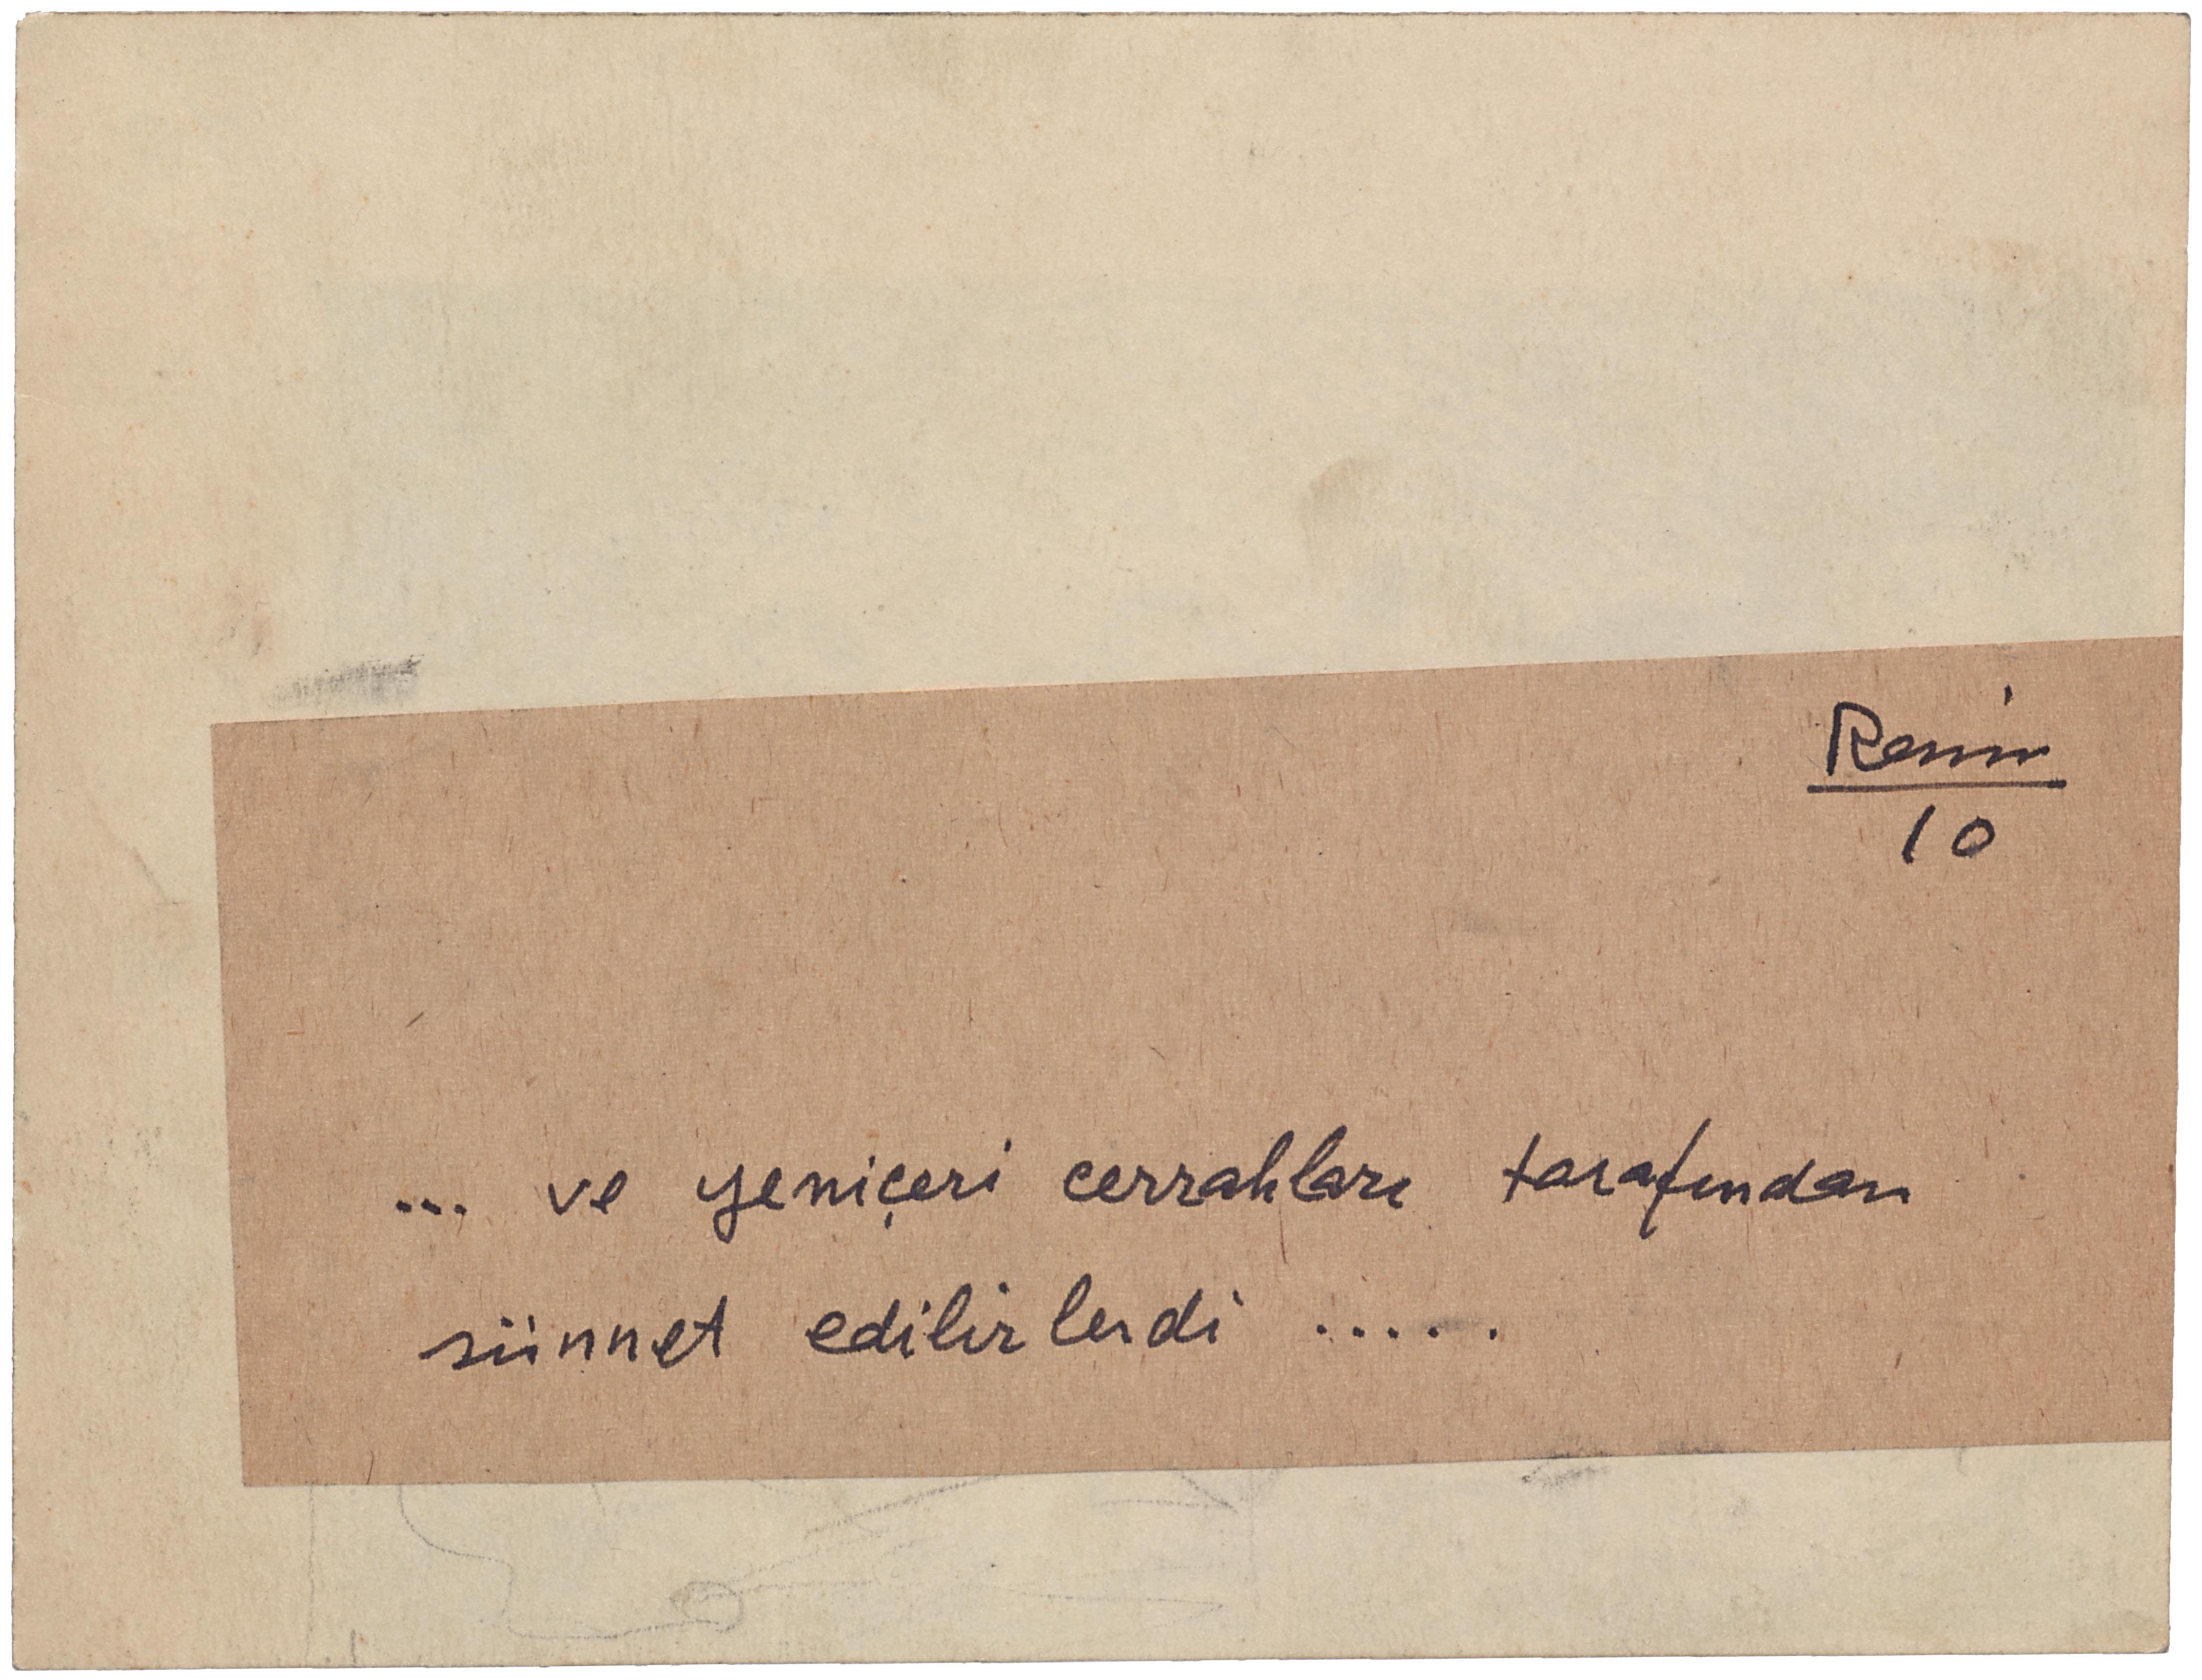 Resim
10
... ve yeniçeri cerrahları tarafından
sünnet edilirlerdi .....